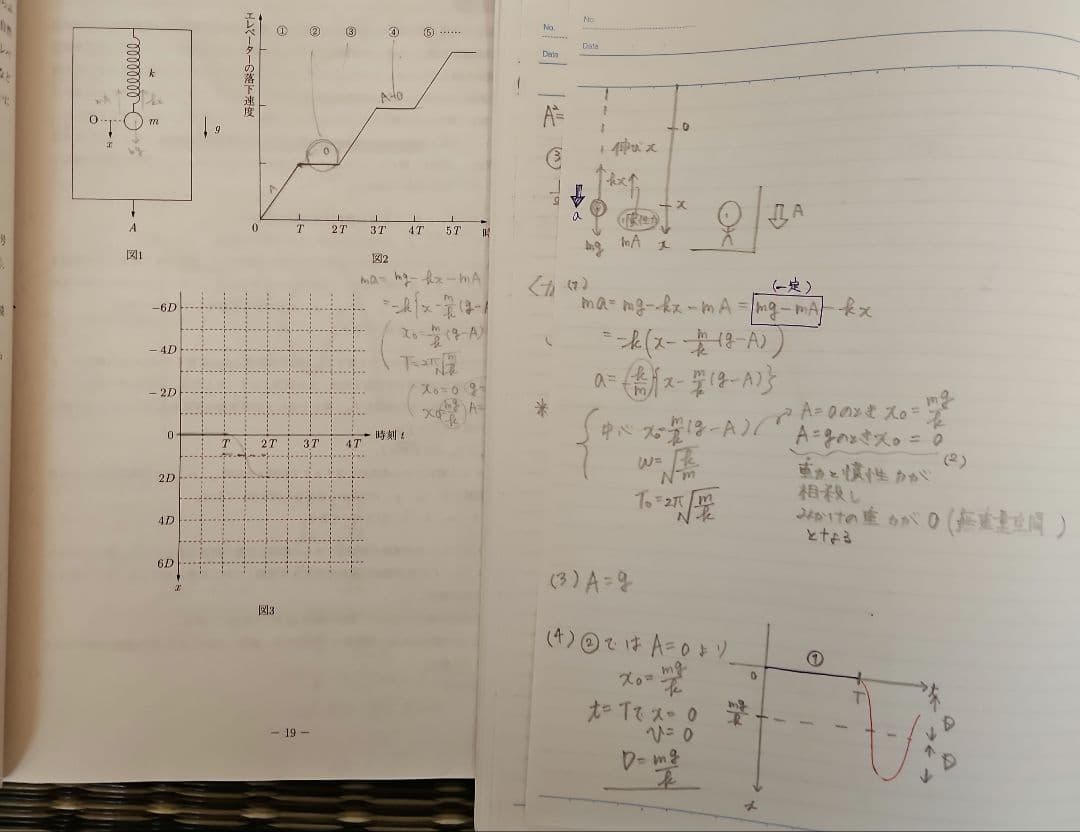 k
O
m
x
g
A
図1
エレベーターの落下速度
① ② ③ ④ ⑤ ……
A=0
0
A
0 T 2T 3T 4T 5T 時
図2
ma = mg - kx - mA
= -k{x - m/k (g-A
x₀ = m/k (g-A)
T = 2π√(m/k)
x₀ = 0 (g=
mg/k) A=
-6D
-4D
-2D
0 T 2T 3T 4T 時刻 t
2D
4D
6D
x
図3
— 19 —
No.
Date
No.
Date
A²=
③
0
伸び x
kx
a
mg
慣性力
mA
x
x
A
(1) (一定)
ma = mg - kx - mA = mg - mA - kx
= -k(x - m/k (g-A))
a = -k/m {x - m/k (g-A)}
*
中心 x₀ = m/k (g-A)
A=0のとき x₀ = mg/k
A=gのとき x₀ = 0
ω = √(k/m)
T₀ = 2π√(m/k)
(2)
重力と慣性力が
相殺し
みかけの重力が 0 (無重量空間)
となる
(3) A = g
(4) ②では A=0 より
x₀ = mg/k
t=Tで x=0
v=0
D = mg/k
0
①
T
t
mg/k
D
D
x